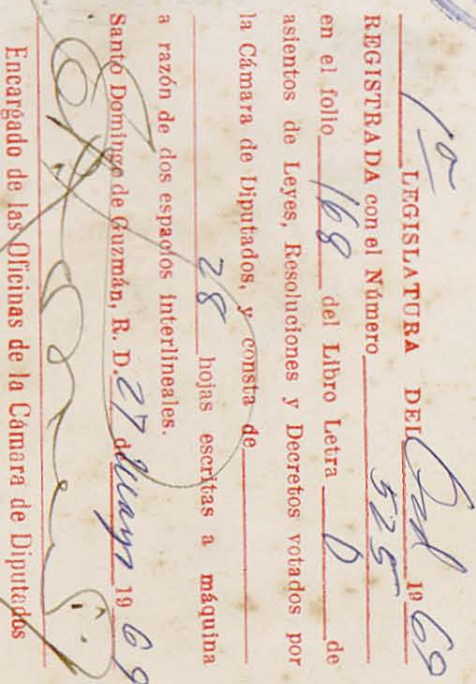 1ª LEGISLATURA DEL Ord 1969
REGISTRADA con el Número 525
en el folio 168 del Libro Letra D de
asientos de Leyes, Resoluciones y Decretos votados por
la Cámara de Diputados, y consta de
28 hojas escritas a máquina
a razón de dos espacios interlineales.
Santo Domingo de Guzmán, R. D. 27 de Mayo 1969
Encargado de las Oficinas de la Cámara de Diputados